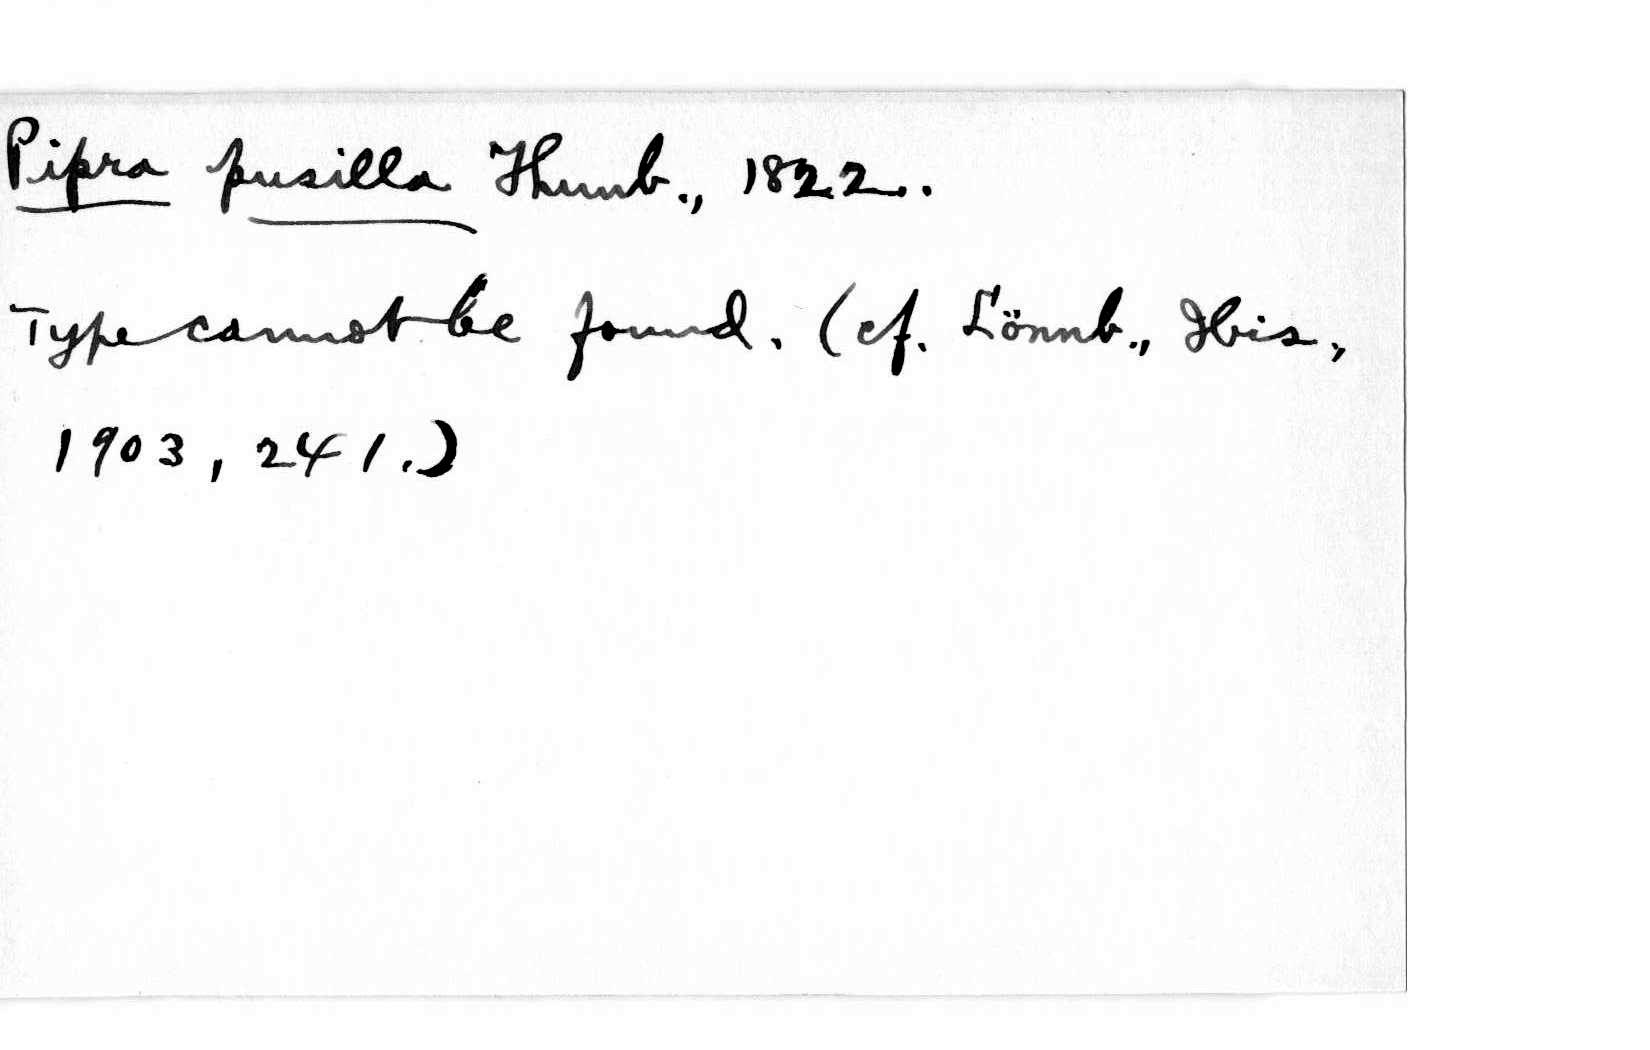 Pipra pusilla Thunb., 1822.
Type cannot be found. (cf. Lönnb., Ibis,
1903, 241.)